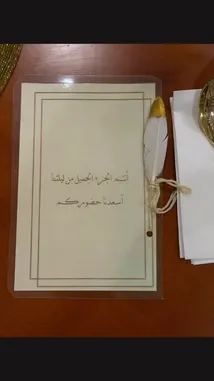 أنتم الجزء الجميل من ليلتنا
أسعدنا حضوركم